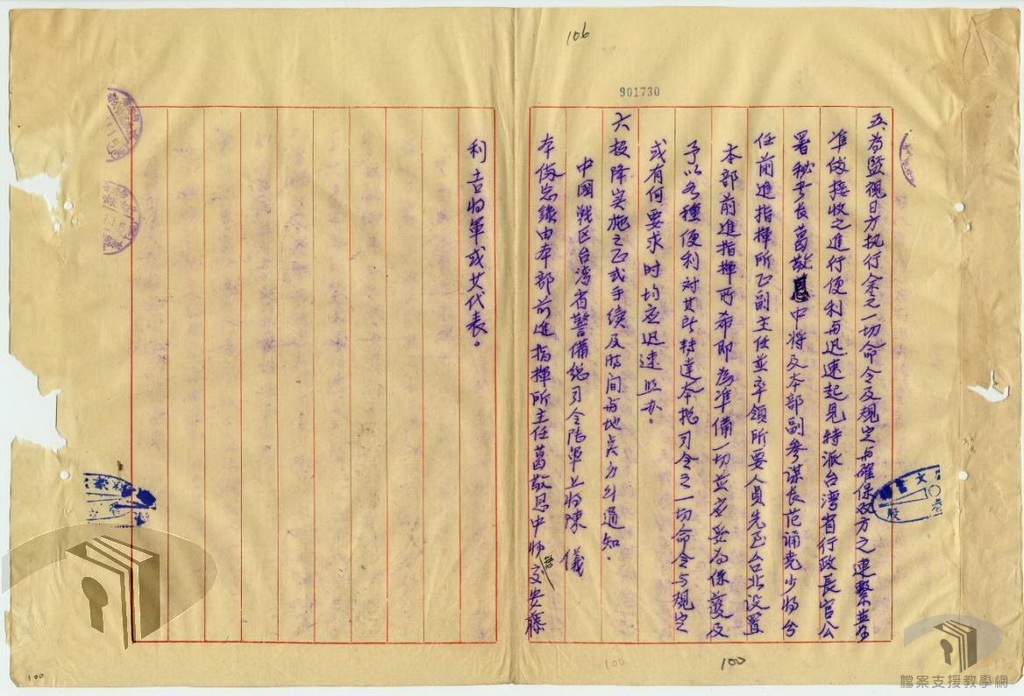 106
901730
五、為監視日方执行余之一切命令及規定与確保双方之連繫並為
準儆接收之進行便利与迅速起見特派台湾省行政長官公
署秘书長葛敬恩中将及本部副参謀長范诵尭少将分
任前進指揮所正副主任並率領所要人員先至台北设置
本部前進指揮所希即為準備一切並应妥為保護及
予以各種便利对其所轉達本总司令之一切命令与規定
或有何要求时均应迅速照办。
六投降实施之正式手续及时间与地点另行通知。
中國戦区台湾省警備總司令陆軍上将陳 儀
本俻忘錄由本部前進指揮所主任葛敬恩中将交安藤
利吉将軍或其代表。
100
100
100
檔案支援教學網